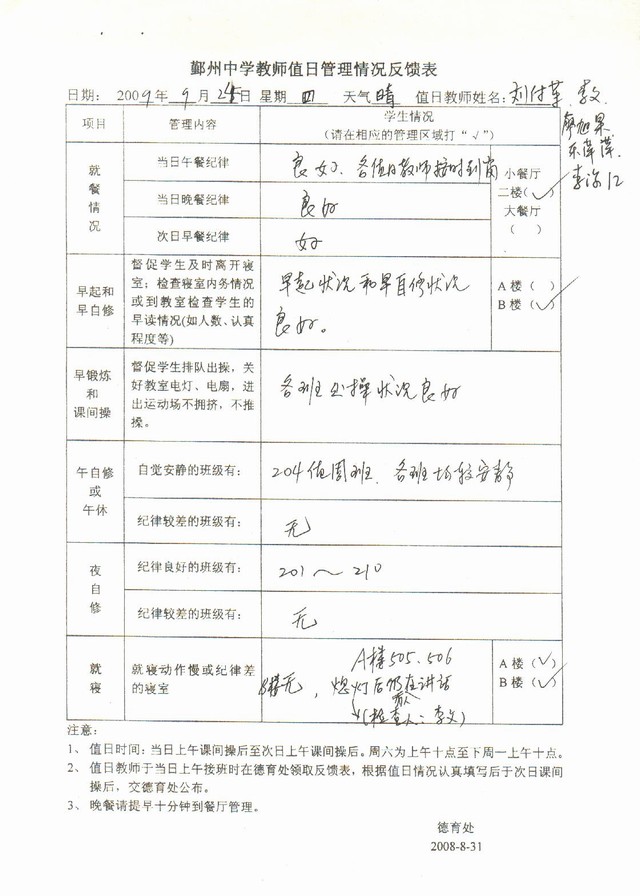 鄞州中学教师值日管理情况反馈表
日期: 2009年 9月 24日 星期 四 天气 晴 值日教师姓名: 刘付革、李文
廖旭果
李海江
项目 管理内容 学生情况
(请在相应的管理区域打“√”)
就餐情况
当日午餐纪律 良好、各值日教师按时到岗
当日晚餐纪律 良好
次日早餐纪律 好
小餐厅
二楼(√)
大餐厅
( )
早起和
早自修
督促学生及时离开寝
室；检查寝室内务情况
或到教室检查学生的
早读情况(如人数、认真
程度等)
早起状况和早自修状况
良好。
A 楼 ( )
B 楼 (√)
早锻炼
和
课间操
督促学生排队出操，关
好教室电灯、电扇，进
出运动场不拥挤，不推
搡。
各班出操状况良好
午自修
或
午休
自觉安静的班级有: 204值周班、各班均较安静
纪律较差的班级有: 无
夜自修
纪律良好的班级有: 201～210
纪律较差的班级有: 无
就寝
就寝动作慢或纪律差
的寝室
A楼505、506
B楼无，熄灯后仍有人在讲话
(检查人：李文)
A 楼 (√)
B 楼 (√)
注意:
1、 值日时间: 当日上午课间操后至次日上午课间操后。周六为上午十点至下周一上午十点。
2、 值日教师于当日上午接班时在德育处领取反馈表，根据值日情况认真填写后于次日课间
操后，交德育处公布。
3、 晚餐请提早十分钟到餐厅管理。
德育处
2008-8-31